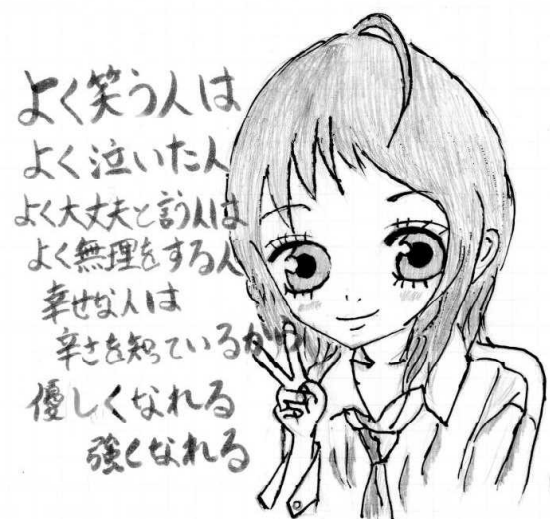 よく笑う人は
よく泣いた人
よく大丈夫と言う人は
よく無理をする人
幸せな人は
辛さを知っているから
優しくなれる
強くなれる